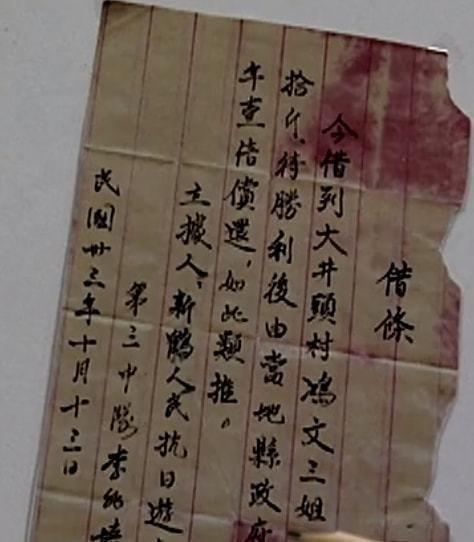 借條
今借到大井頭村鴻文三姐
拾斤,待勝利後由當地縣政府
年壹倍償還,如此類推。
立據人:新鶴人民抗日遊
第三中隊李
民國卅三年十月十三日